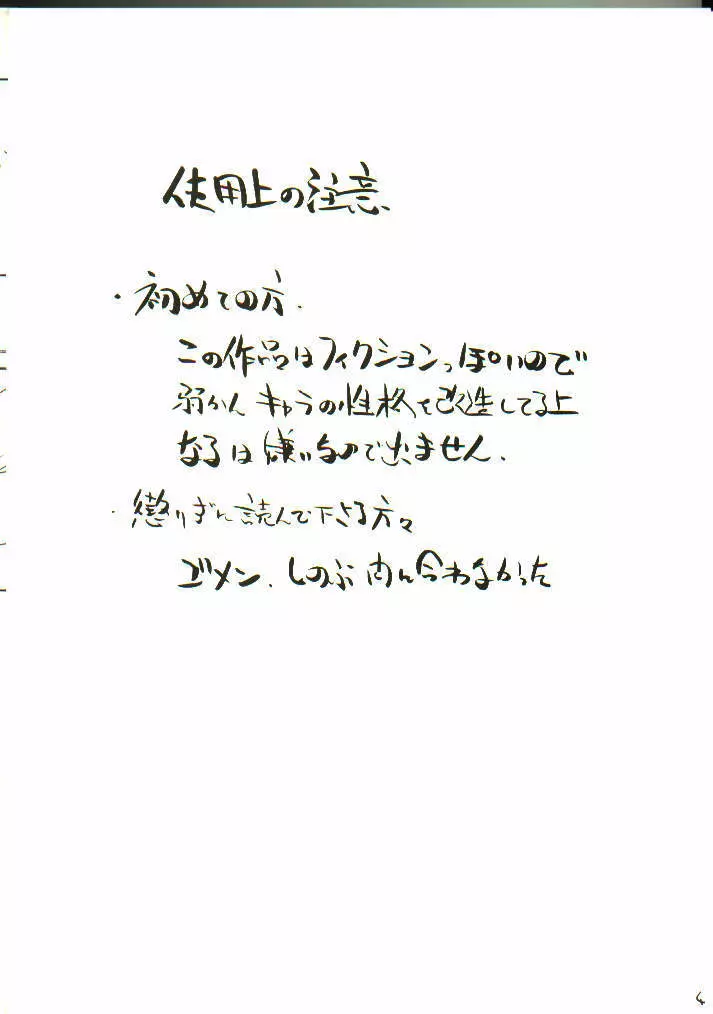 使用上の注意
・初めての方.
この作品はフィクションっぽいので
弱かん キャラの性格を改造してる上
なるは嫌いなので出ません.
・懲りずに読んで下さる方々
ゴメン. しのぶ 間に合わなかった